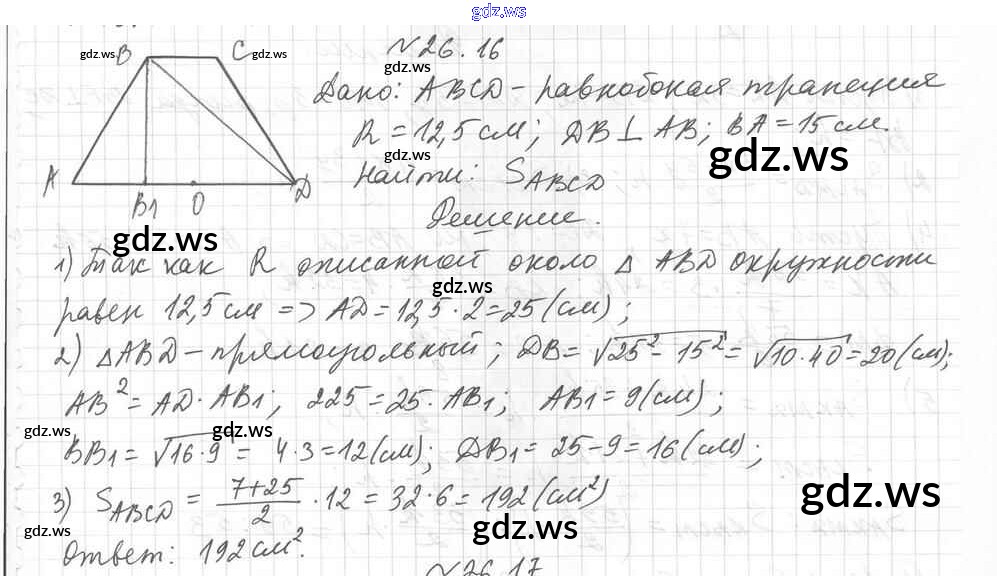 gdz.ws
№26.16
gdz.ws B C gdz.ws
gdz.ws
Дано: ABCD - равнобокая трапеция
R = 12,5 см; DB ⊥ AB; BA = 15 см.
gdz.ws gdz.ws
Найти: S_ABCD
A B1 O D
Решение.
gdz.ws
1) Так как R описанной около Δ ABD окружности
gdz.ws
равен 12,5 см => AD = 12,5 · 2 = 25 (см);
2) ΔABD - прямоугольный; DB = √25² - 15² = √10·40 = 20 (см);
AB² = AD · AB1; 225 = 25 · AB1; AB1 = 9 (см);
gdz.ws gdz.ws
BB1 = √16·9 = 4·3 = 12 (см); DB1 = 25 - 9 = 16 (см);
3) S_ABCD = 7+25/2 · 12 = 32·6 = 192 (см²)
gdz.ws
gdz.ws gdz.ws
Ответ: 192 см².
№26.17